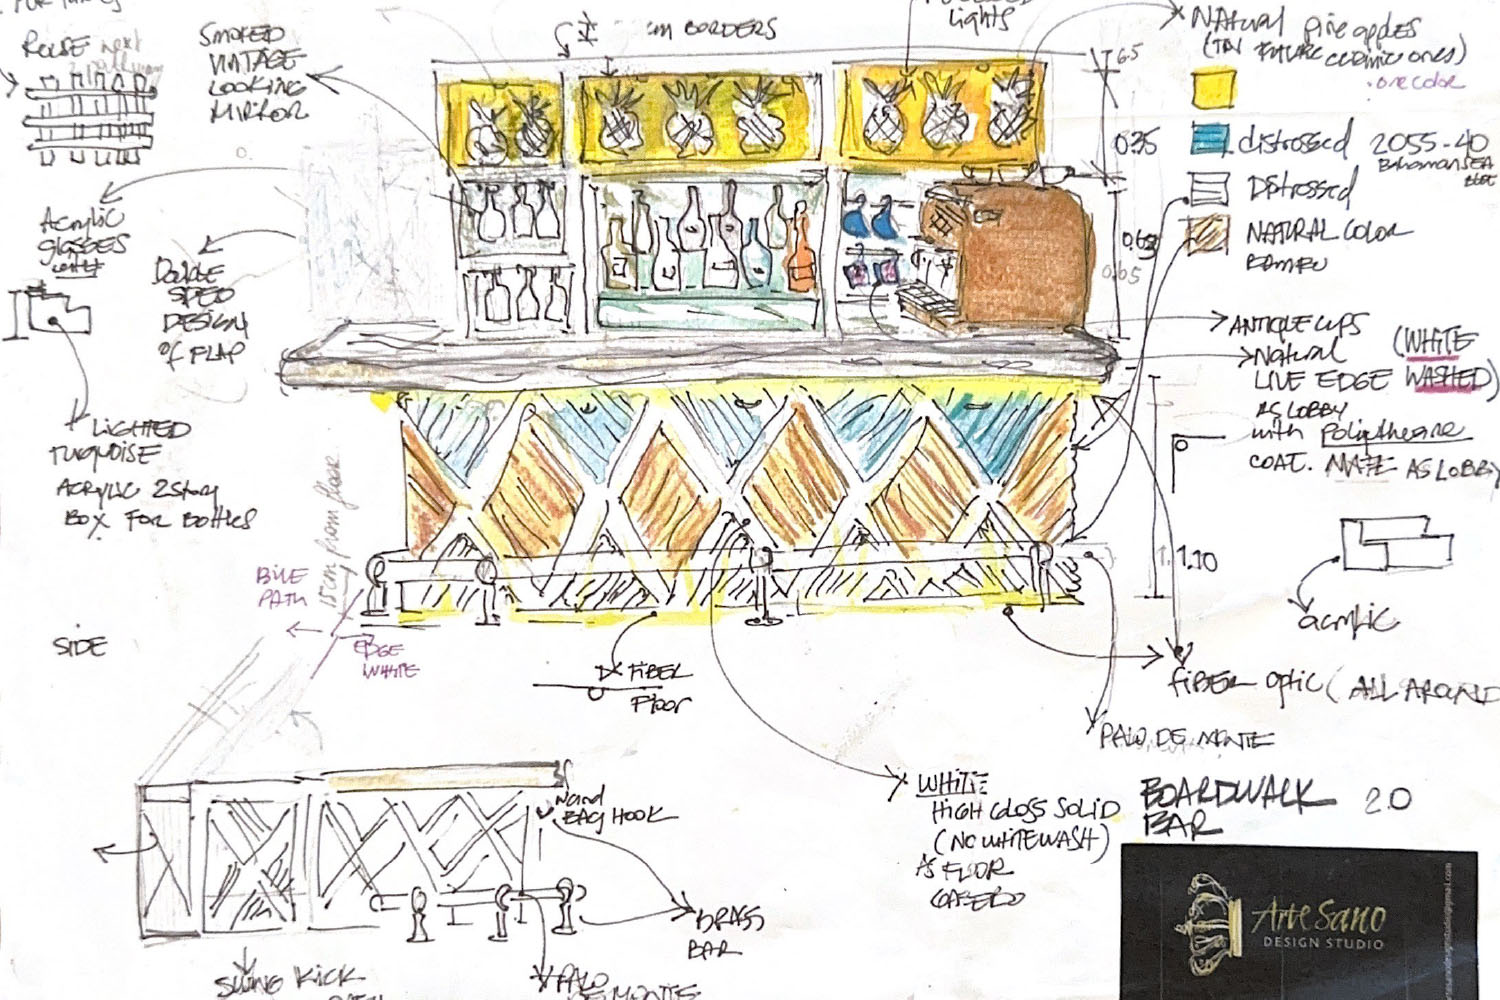 FOR
REUSE next
SMOKED
VINTAGE
LOOKING
MIRROR
cm BORDERS
lights
NATURAL pineapples
(IN FUTURE ceramic ones)
. one color
6.5
0.35
distressed 2055-40
Bahaman SEA
Blue
DISTRESSED
NATURAL COLOR
BAMBU
0.65
Acrylic
glasses
DOUBLE
SIDED
DESIGN
of FLAP
ANTIQUE CUPS
Natural (WHITE
LIVE EDGE WASHED)
AS LOBBY
with
COAT. MATE AS LOBBY
LIGHTED
TURQUOISE
ACRYLIC 2 Story
BOX FOR BOTTLES
15cm from floor
1.10
acrylic
BIKE
PATH
EDGE
WHITE
SIDE
FIBER
Floor
FIBER optic (ALL AROUND
PALO DE MONTE
WHITE
HIGH GLOSS SOLID
(NO WHITEWASH)
AS FLOOR
BOARDWALK 2.0
BAR
BAG HOOK
BRASS
BAR
SWING KICK
PALO
DE MONTE
Arte Sano
DESIGN STUDIO